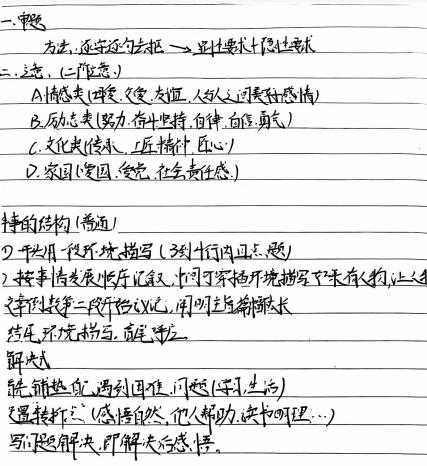 一.审题
方法:逐字逐句去抠 → 显性要求+隐性要求
二.立意.(二阶立意)
A.情感类(母爱.父爱.友谊.人与人之间美好感情)
B.励志类(努力.奋斗坚持.自律.自信.勇气)
C.文化类(传承.工匠精神.匠心)
D.家国(爱国.爱党.社会责任感.)
事的结构(普通)
①开头用一段环境描写(3到4行内点题)
按事情发展顺序记叙.中间可穿插环境描写
文章倒数第二段开始议论.
结尾.环境描写.首尾呼应
解决式
先铺垫自己遇到困难.问题(学习.生活)
设置转折点(感悟自然.他人帮助.读书明理…)
写问题解决.即解决后感悟。